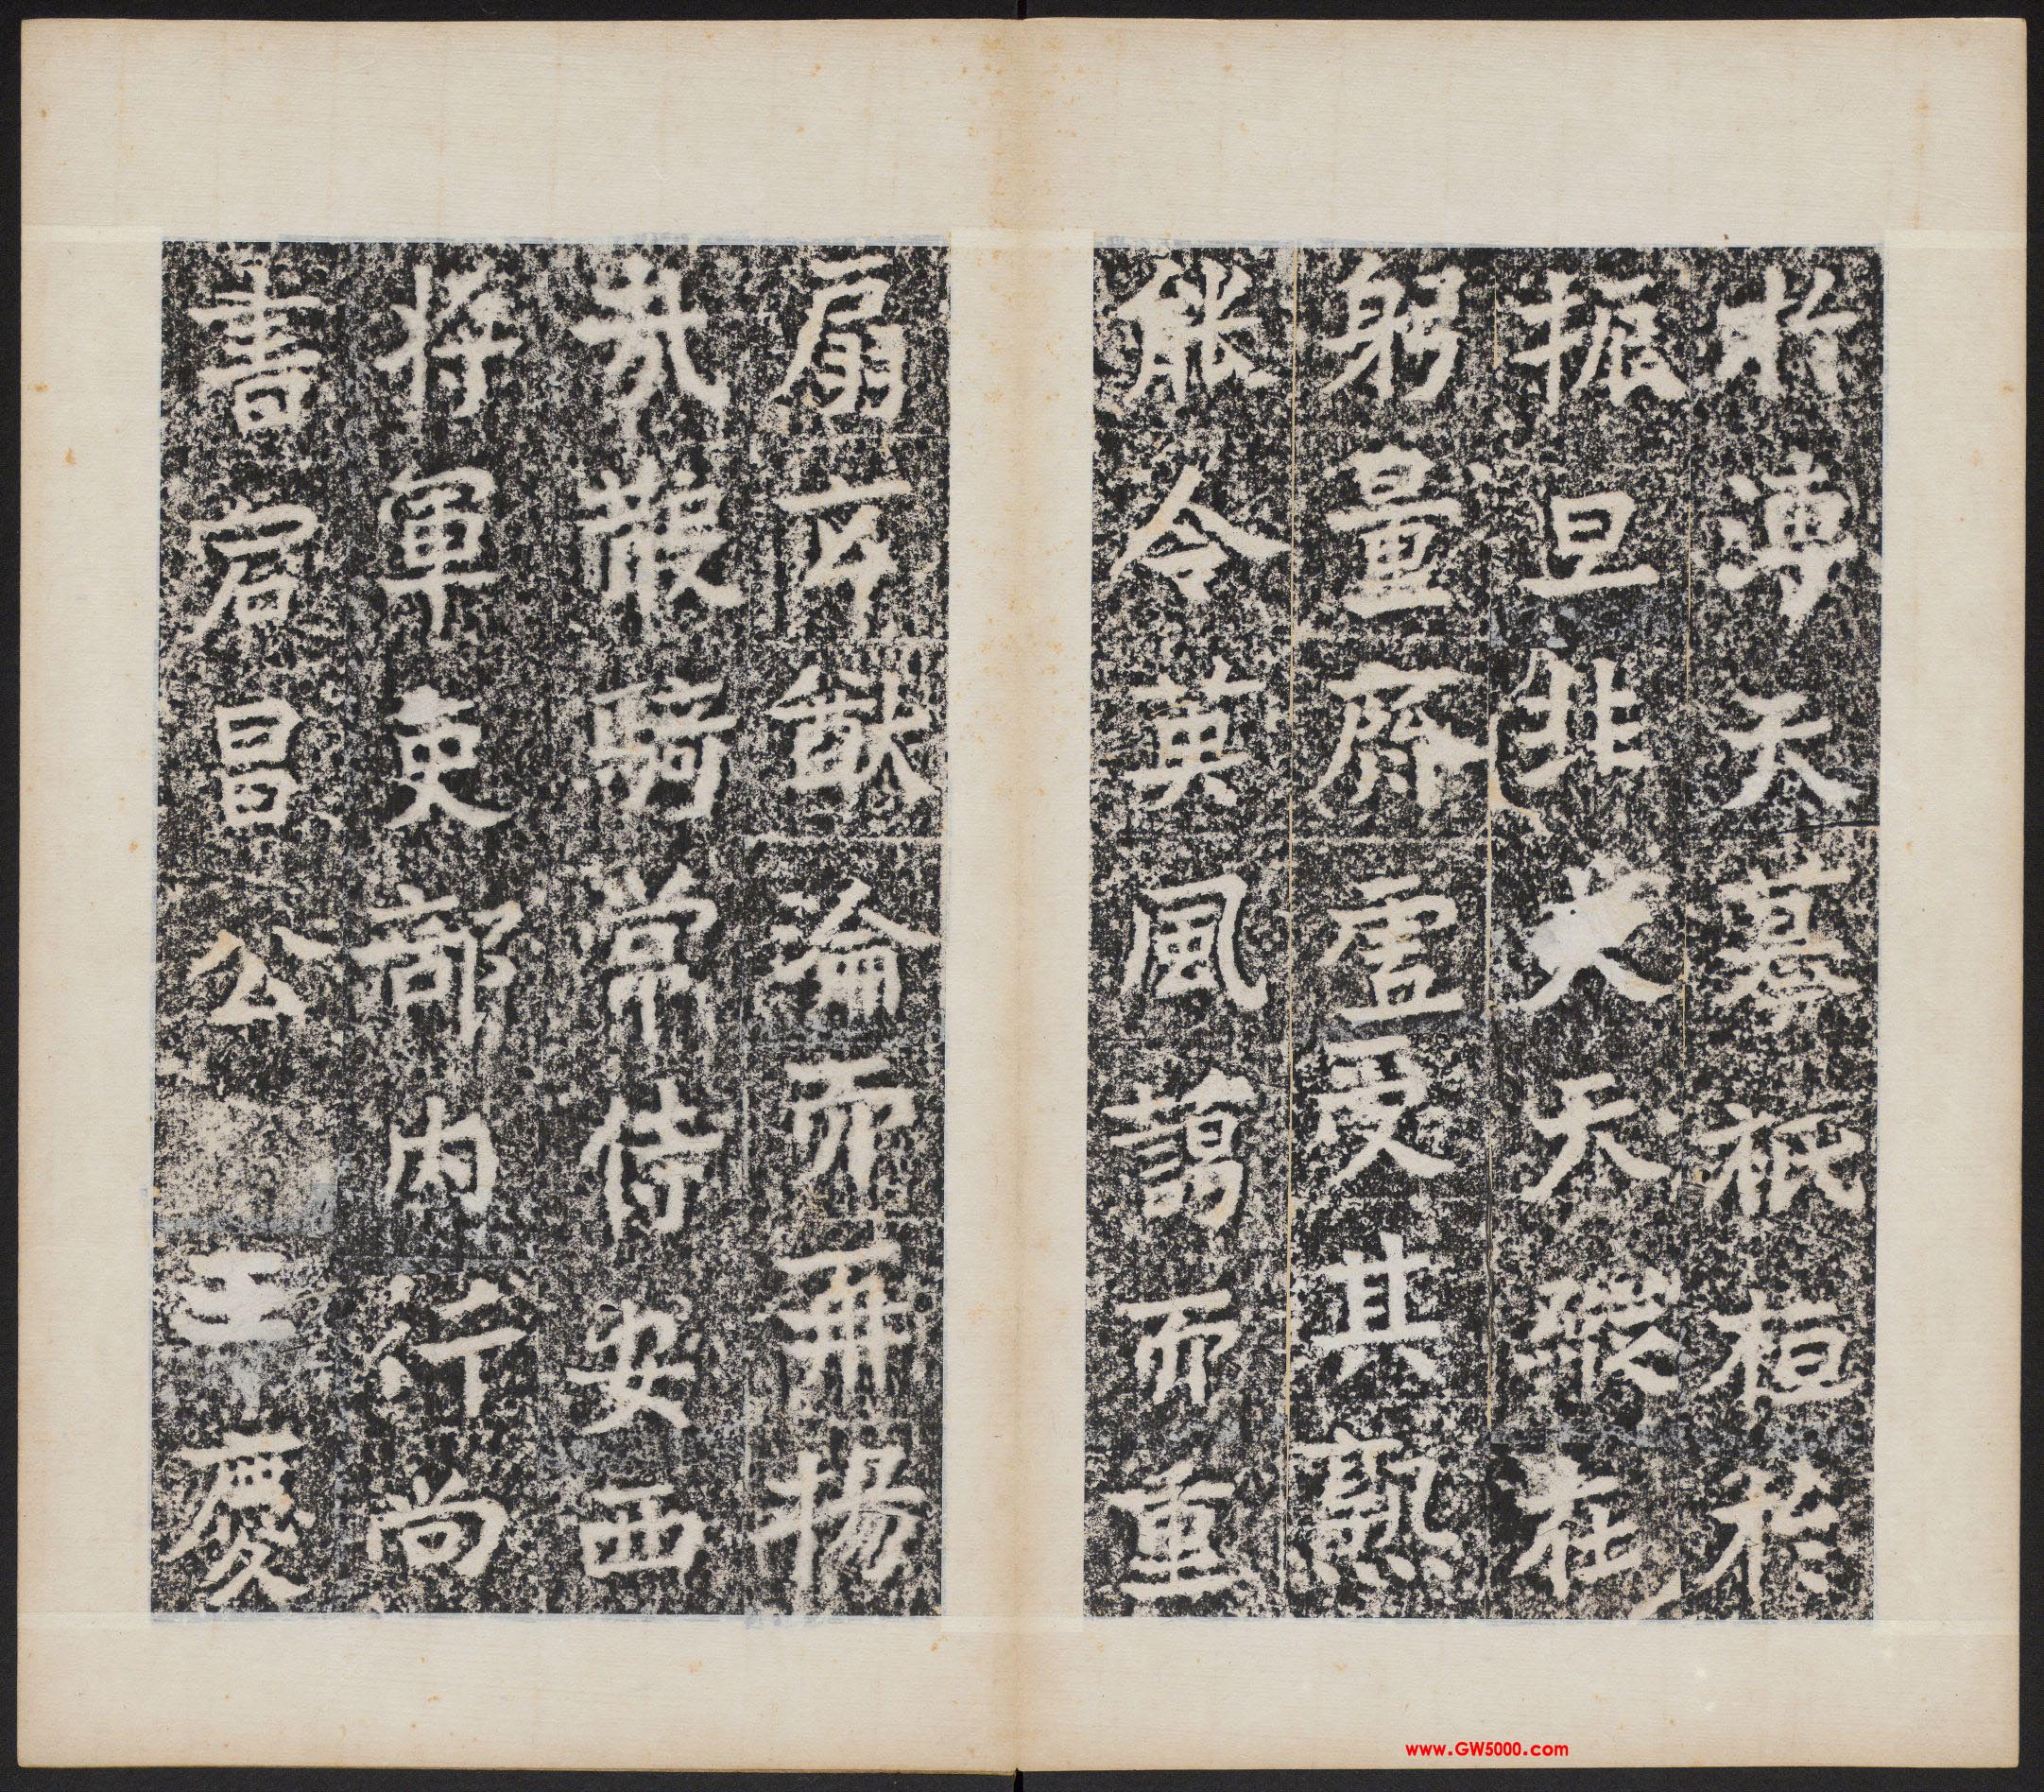 於溥天慕祇桓於
振旦非夫天縱在
躬量齊虛受其孰
能令英風藹而重
扇玄猷淪而再揚
哉散騎常侍安西
將軍吏部內行尚
書宕昌公王慶
www.GW5000.com